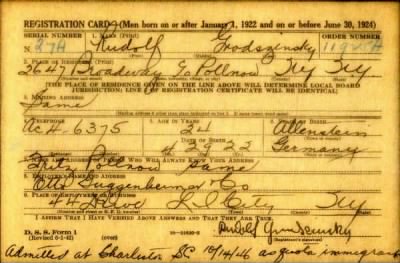 REGISTRATION CARD—(Men born on or after January 1, 1922 and on or before June 30, 1924)
SERIAL NUMBER 1. NAME (Print) ORDER NUMBER
Rudolf Grodszensky
2. PLACE OF RESIDENCE (Print)
2647 Broadway NY NY
[THE PLACE OF RESIDENCE GIVEN ON THE LINE ABOVE WILL DETERMINE LOCAL BOARD
JURISDICTION; LINE 2 OF REGISTRATION CERTIFICATE WILL BE IDENTICAL]
3. MAILING ADDRESS
Same
4. TELEPHONE 5. AGE IN YEARS 6. PLACE OF BIRTH
Ac 4-6375 24 Allenstein
DATE OF BIRTH
29 22 Germany
7. NAME AND ADDRESS OF PERSON WHO WILL ALWAYS KNOW YOUR ADDRESS
Same
8. EMPLOYER'S NAME AND ADDRESS
Otto Guggenheimer Co
9. PLACE OF EMPLOYMENT OR BUSINESS
L I City NY
I AFFIRM THAT I HAVE VERIFIED ABOVE ANSWERS AND THAT THEY ARE TRUE.
D. S. S. Form 1
(Revised 6-1-42)
Admitted at Charleston SC 10/14/46 as quota immigrant